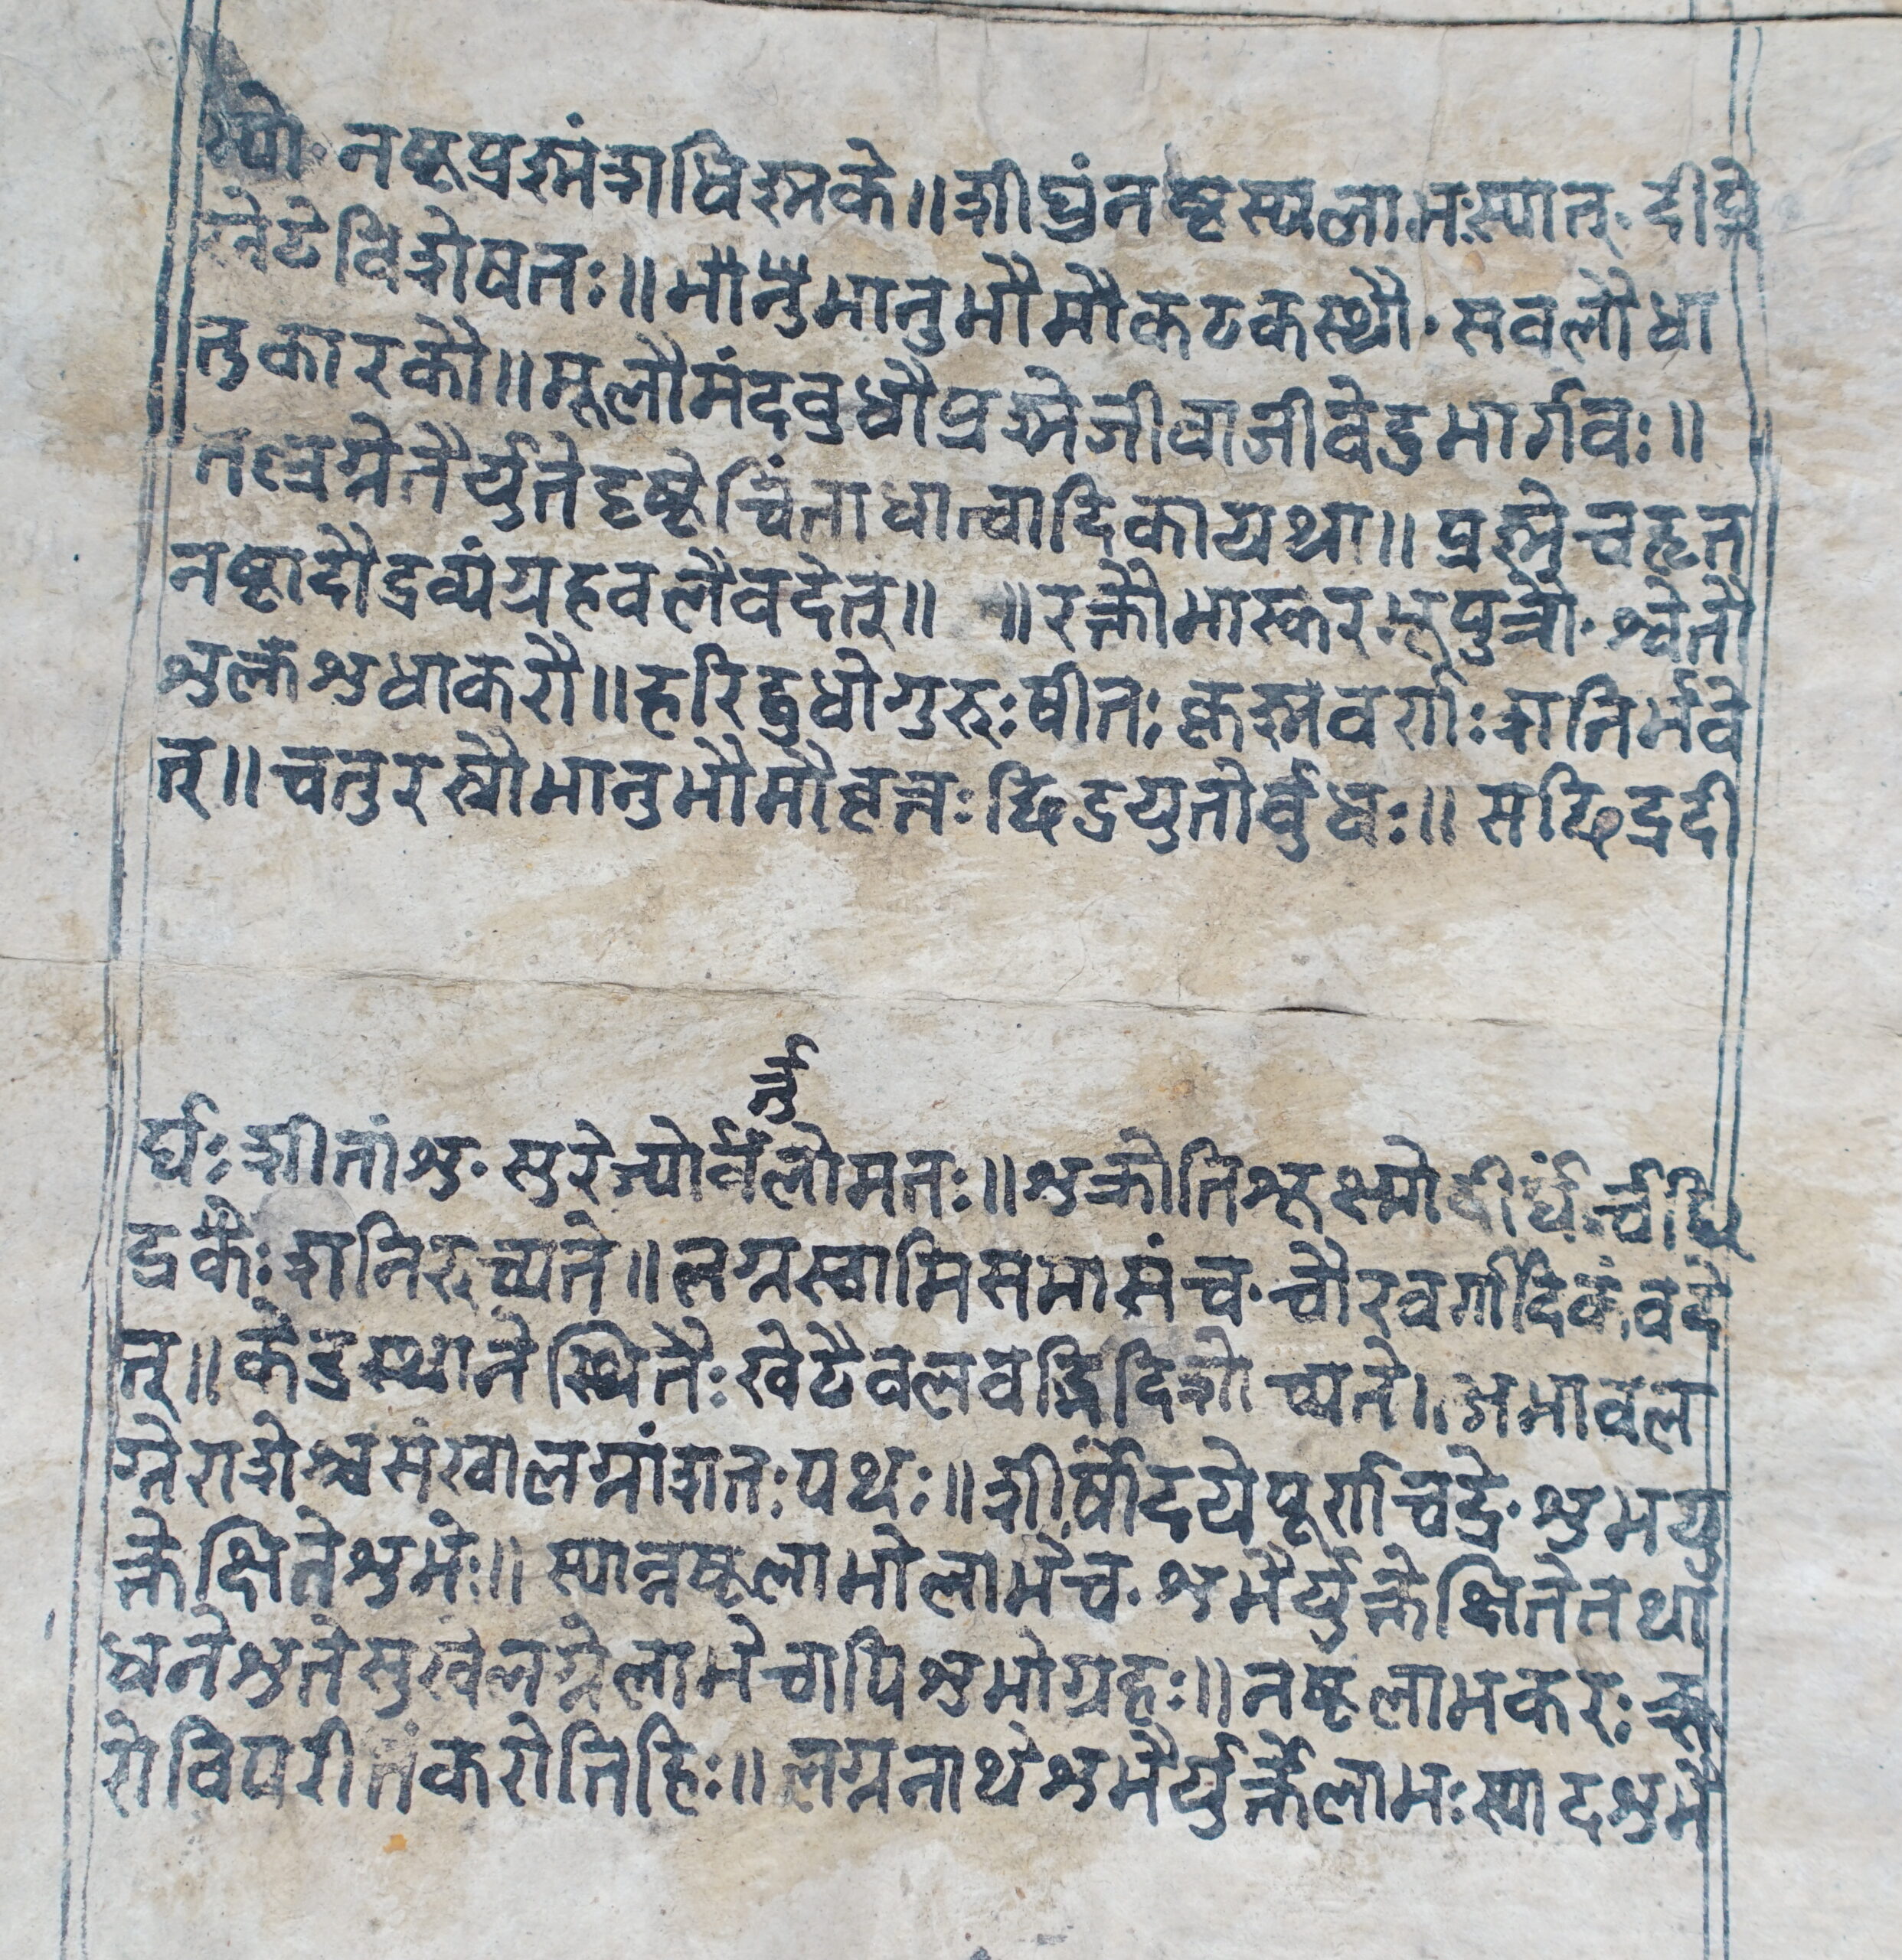 नष्टप्रश्नंशाधिश्नके॥शीघ्रंनष्टस्यलाभःस्यात्· दीप्ते
विशेषतः॥भानुभानुभौमौकटकस्थौ·सवलौधा
तुकारकौ॥मूलौमंदवुधौप्रश्नेजीवाजीवेदुभार्गवः॥
तल्लग्नेतैर्युतेदृष्टेचिंताधात्वादिकायथा॥प्रश्नेचहृत
नष्टादौद्रव्यंग्रहवलैवदेत्॥ ॥रक्तौभास्करभूपुत्रौ·श्वेतौ
शुक्रशुधाकरौ॥हरिद्वुधोगुरुःषीतःकृष्नवर्णःशनिर्भवे
त्॥चतुरस्रौभानुभौमौवृत्तःछिद्रयुतोर्वुधः॥सछिद्रदी
र्तु
र्घः शीतांशु·सुरेज्योर्वलोमतः॥शुक्रोतिशूक्ष्मोदीर्घ·
द्रकैःशनिरुच्यते॥लग्नस्वामिसमासंच·चौरवर्णादिकंवदे
त्॥केद्रस्थानेस्थितैःखेटैवलवद्भिदिशोच्यते।अभावल
ग्नेराशेश्चसंख्यालग्नांशतःपथः॥शीर्षोदयेपूर्णचद्रे·शुभयु
क्तेक्षितेशुभेः॥स्यान्नष्टलाभोलाभेच·शुभैर्युक्तेक्षितेतथा
धनेशुतेसुखेलग्नेलाभेचापिशुभोग्रहः॥नष्टलाभकरःक्रू
रोविपरीतंकरोतिहिः॥लग्ननाथेशुभैर्युक्तेलाभःस्यादशुभे